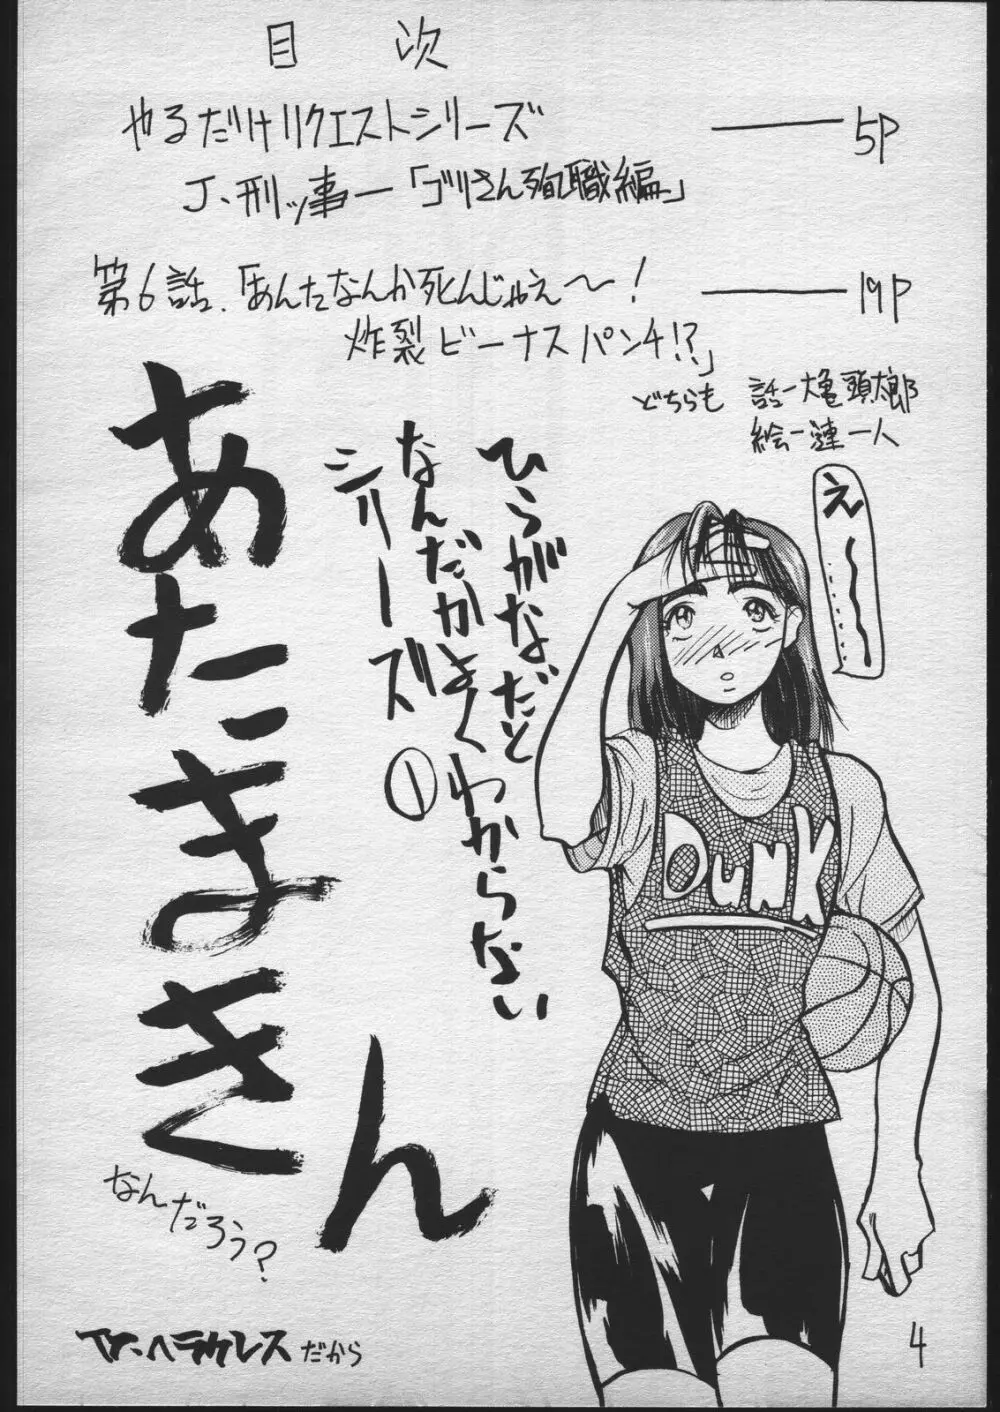 目次
やるだけリクエストシリーズ ——— 5P
J、刑ッ事ー「ゴリさん殉職編」
第6話、「あんたなんか死んじゃえ〜！ ——— 19P
炸裂ビーナスパンチ!?」
どちらも 話ー大亀頭太郎
絵ー漣一人
え〜〜
ひらがなだと
なんだかよくわからない
シリーズ①
あたまきん
なんだろう?
ヘラクレスだから
DUNK
4